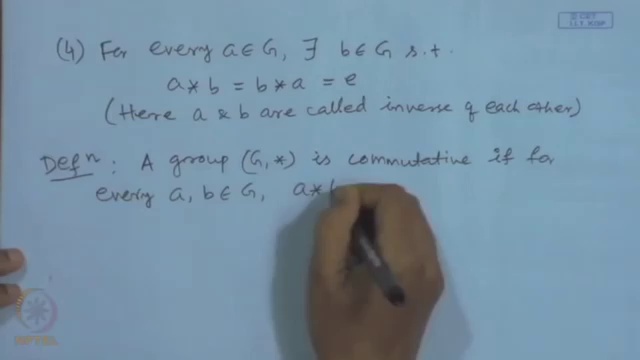 © CET
I.I.T. KGP
(4) For every a ∈ G, ∃ b ∈ G s.t.
a * b = b * a = e
(Here a & b are called inverse of each other)
Defⁿ : A group (G, *) is commutative if for
every a, b ∈ G, a *
NPTEL